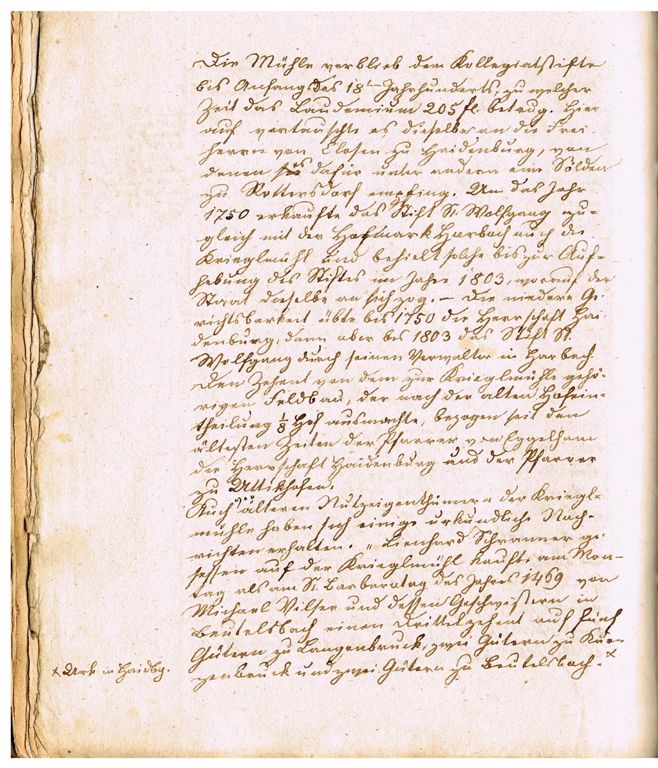 Die Mühle verblieb dem Kollegiatstifte
bis Anfang des 18ten Jahrhunderts, zu welcher
Zeit das Laudemium 205 fl. betrug. Hier
auf vertauschte es dieselbe an die Frei
herrn von Closen zu Haidenburg, von
denen es dafür unter andern eine Sölden
zu Rottersdorf empfing. Um das Jahr
1750 erkaufte das Stift St. Wolfgang zu-
gleich mit der Hofmark Harbach auch die
Krieglmühl und behielt solche bis zur Auf-
hebung des Stiftes im Jahre 1803, worauf der
Staat dieselbe an sich zog. – Die niedere Ge
richtsbarkeit übte bis 1750 die Herrschaft Hai
denburg, dann aber bis 1803 das Stift St.
Wolfgang durch seinen Verwalter in Harbach.
Den Zehent von dem zur Krieglmühle gehö-
rigen Feldbau, der nach der alten Hofein-
theilung 1/8 Hof ausmachte, bezogen seit den
ältesten Zeiten der Pfarrer von Eggelham
die Herrschaft Haidenburg und der Pfarrer
zu Uttikhofen.
Auch älteren Nutzeigenthümern der Kriegl-
mühle haben sich einige urkundliche Nach-
richten erhalten. Lienhard Schranner ge
sessen auf der Krieglmühl kauft am Mon-
tag als am St. Barbaratag des Jahres 1469 von
Michael Vilser und dessen Geschwistern in
Beutelsbach einen Drittelzehent auf fünf
Gütern zu Langenbruck, zwei Gütern zu Kür-
zenbruck und zwei Gütern zu Beutelsbach. x
x Urk in Haidbg.